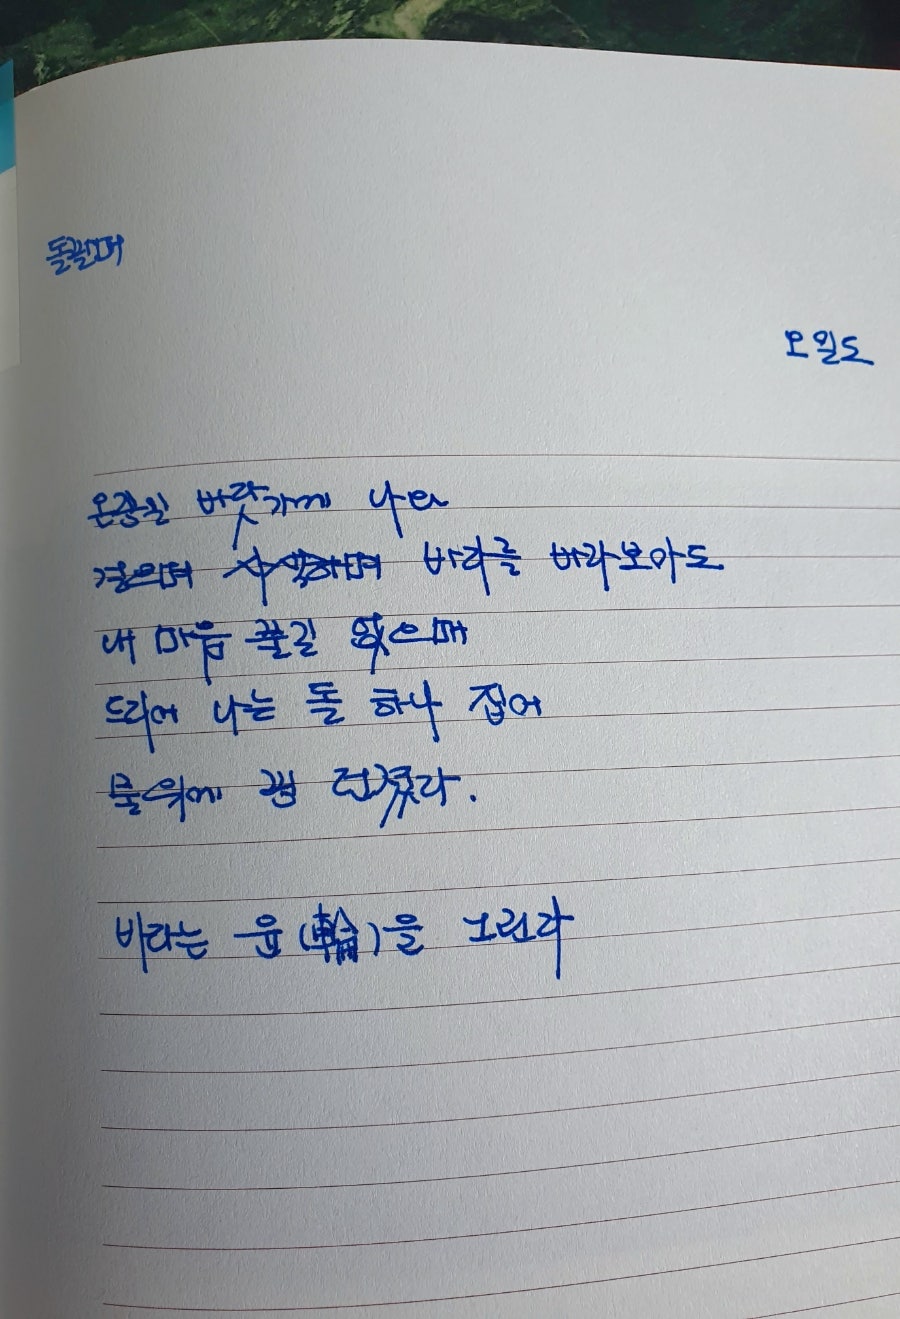 돌팔매
오일도
온종일 바닷가에 나와
걸으며 사색하며 바다를 바라보아도
내 마음 풀길 없으매
드디어 나는 돌 하나 집어
물위에 핑 던졌다.
바다는 윤(輪)을 그린다